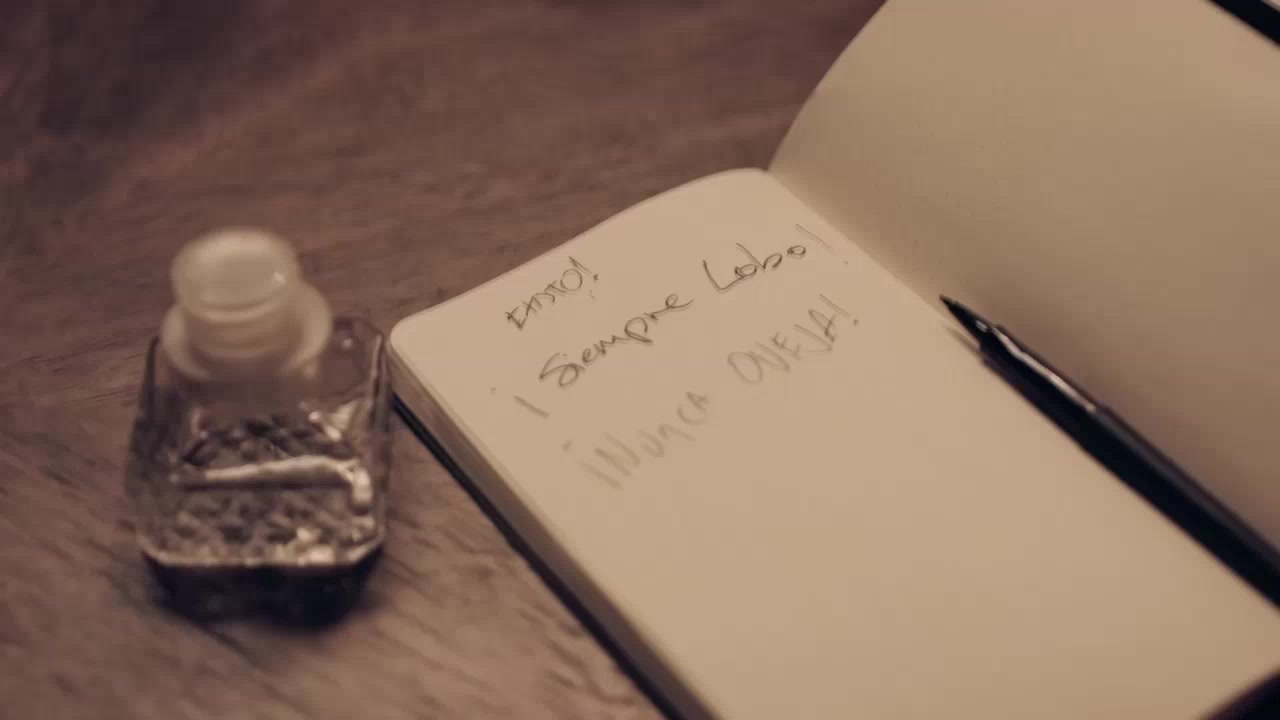 ¡Siempre Lobo!
¡NUNCA OVEJA!